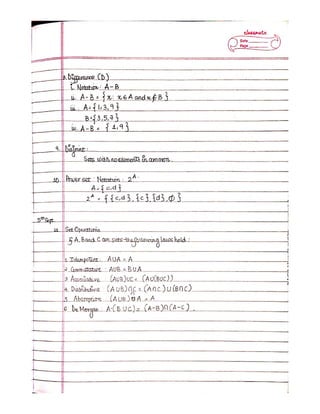 classmate
Date
Page
8. Difference (D)
i. Notation : A-B
ii. A-B = { x: x∈A and x∉B }
iii. A={1,3,9}
B={3,5,7}
iv. A-B = {1,9}
9. Disjoint :
Sets with no elements in common.
10. Power set : Notation : 2^A
A={c,d}
2^A = {{c,d},{c},{d},∅}
5th Sept
11. Set Operations
If A, B and C are sets the following laws hold :
1. Idempotive : AUA = A
2. Commutative : AUB = BUA
3. Associative (AUB)UC = (AU(BUC))
4. Distributive (AUB)∩C = (A∩C)U(B∩C)
5. Absorption (AUB)∩A = A
6. De Morgan A-(BUC)= (A-B)∩(A-C)